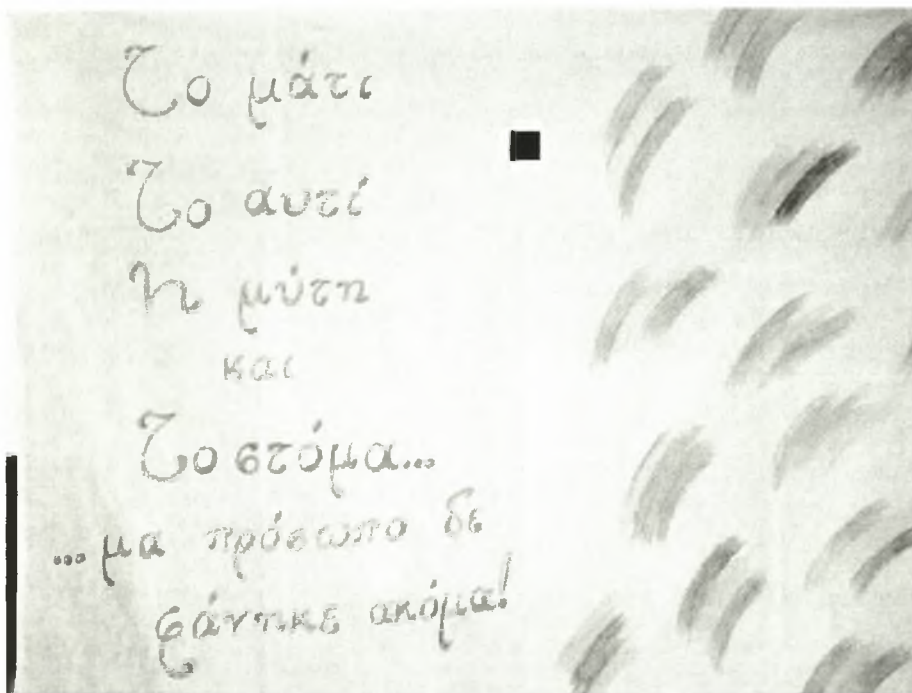 Το μάτι
Το αυτί
Η μύτη
και
Το στόμα...
...μα πρόσωπο δε
φάνηκε ακόμα!